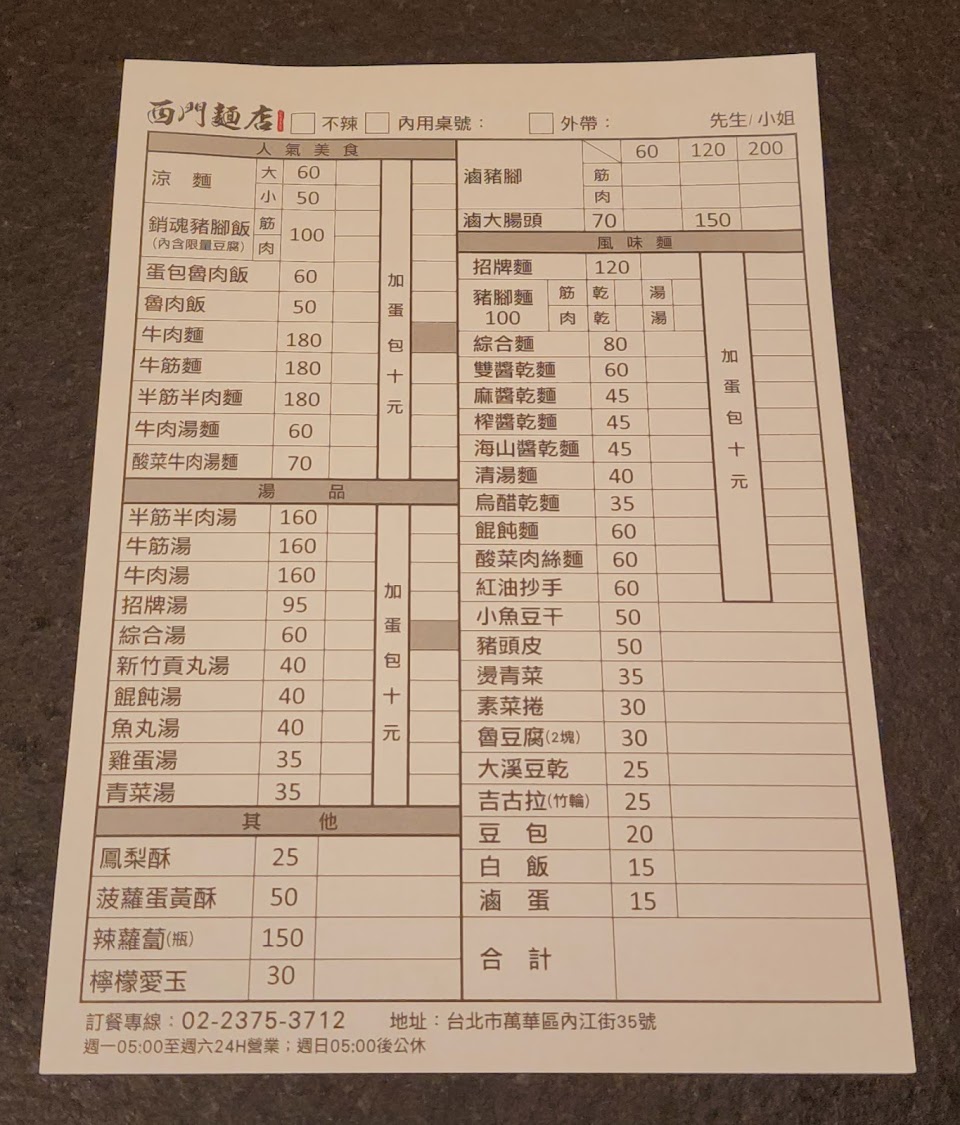 西門麵店 不辣 內用桌號： 外帶： 先生/小姐
人氣美食
涼麵 大 60
小 50
銷魂豬腳飯 筋 100
(內含限量豆腐) 肉
蛋包魯肉飯 60
魯肉飯 50
牛肉麵 180
牛筋麵 180
半筋半肉麵 180
牛肉湯麵 60
酸菜牛肉湯麵 70
加蛋包十元
湯品
半筋半肉湯 160
牛筋湯 160
牛肉湯 160
招牌湯 95
綜合湯 60
新竹貢丸湯 40
餛飩湯 40
魚丸湯 40
雞蛋湯 35
青菜湯 35
加蛋包十元
其他
鳳梨酥 25
菠蘿蛋黃酥 50
辣蘿蔔(瓶) 150
檸檬愛玉 30
60 120 200
滷豬腳 筋
肉
滷大腸頭 70 150
風味麵
招牌麵 120
豬腳麵 筋 乾 湯
100 肉 乾 湯
綜合麵 80
雙醬乾麵 60
麻醬乾麵 45
榨醬乾麵 45
海山醬乾麵 45
清湯麵 40
烏醋乾麵 35
餛飩麵 60
酸菜肉絲麵 60
紅油抄手 60
加蛋包十元
小魚豆干 50
豬頭皮 50
燙青菜 35
素菜捲 30
魯豆腐(2塊) 30
大溪豆乾 25
吉古拉(竹輪) 25
豆包 20
白飯 15
滷蛋 15
合計
訂餐專線：02-2375-3712 地址：台北市萬華區內江街35號
週一05:00至週六24H營業；週日05:00後公休